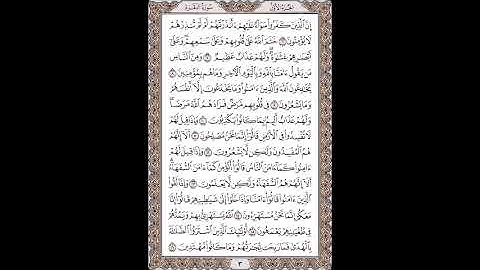 الجزء الأول سورة البقرة
إِنَّ ٱلَّذِينَ كَفَرُوا۟ سَوَآءٌ عَلَيْهِمْ ءَأَنذَرْتَهُمْ أَمْ لَمْ تُنذِرْهُمْ
لَا يُؤْمِنُونَ ٦ خَتَمَ ٱللَّهُ عَلَىٰ قُلُوبِهِمْ وَعَلَىٰ سَمْعِهِمْ وَعَلَىٰٓ
أَبْصَٰرِهِمْ غِشَٰوَةٌ وَلَهُمْ عَذَابٌ عَظِيمٌ ٧ وَمِنَ ٱلنَّاسِ
مَن يَقُولُ ءَامَنَّا بِٱللَّهِ وَبِٱلْيَوْمِ ٱلْءَاخِرِ وَمَا هُم بِمُؤْمِنِينَ ٨
يُخَٰدِعُونَ ٱللَّهَ وَٱلَّذِينَ ءَامَنُوا۟ وَمَا يَخْدَعُونَ إِلَّآ أَنفُسَهُمْ
وَمَا يَشْعُرُونَ ٩ فِى قُلُوبِهِم مَّرَضٌ فَزَادَهُمُ ٱللَّهُ مَرَضًا
وَلَهُمْ عَذَابٌ أَلِيمٌۢ بِمَا كَانُوا۟ يَكْذِبُونَ ١٠ وَإِذَا قِيلَ لَهُمْ
لَا تُفْسِدُوا۟ فِى ٱلْأَرْضِ قَالُوٓا۟ إِنَّمَا نَحْنُ مُصْلِحُونَ ١١ أَلَآ إِنَّهُمْ
هُمُ ٱلْمُفْسِدُونَ وَلَٰكِن لَّا يَشْعُرُونَ ١٢ وَإِذَا قِيلَ لَهُمْ
ءَامِنُوا۟ كَمَآ ءَامَنَ ٱلنَّاسُ قَالُوٓا۟ أَنُؤْمِنُ كَمَآ ءَامَنَ ٱلسُّفَهَآءُ
أَلَآ إِنَّهُمْ هُمُ ٱلسُّفَهَآءُ وَلَٰكِن لَّا يَعْلَمُونَ ١٣ وَإِذَا لَقُوا۟
ٱلَّذِينَ ءَامَنُوا۟ قَالُوٓا۟ ءَامَنَّا وَإِذَا خَلَوْا۟ إِلَىٰ شَيَٰطِينِهِمْ قَالُوٓا۟ إِنَّا
مَعَكُمْ إِنَّمَا نَحْنُ مُسْتَهْزِءُونَ ١٤ ٱللَّهُ يَسْتَهْزِئُ بِهِمْ وَيَمُدُّهُمْ
فِى طُغْيَٰنِهِمْ يَعْمَهُونَ ١٥ أُو۟لَٰٓئِكَ ٱلَّذِينَ ٱشْتَرَوُا۟ ٱلضَّلَٰلَةَ
بِٱلْهُدَىٰ فَمَا رَبِحَت تِّجَٰرَتُهُمْ وَمَا كَانُوا۟ مُهْتَدِينَ ١٦
٣